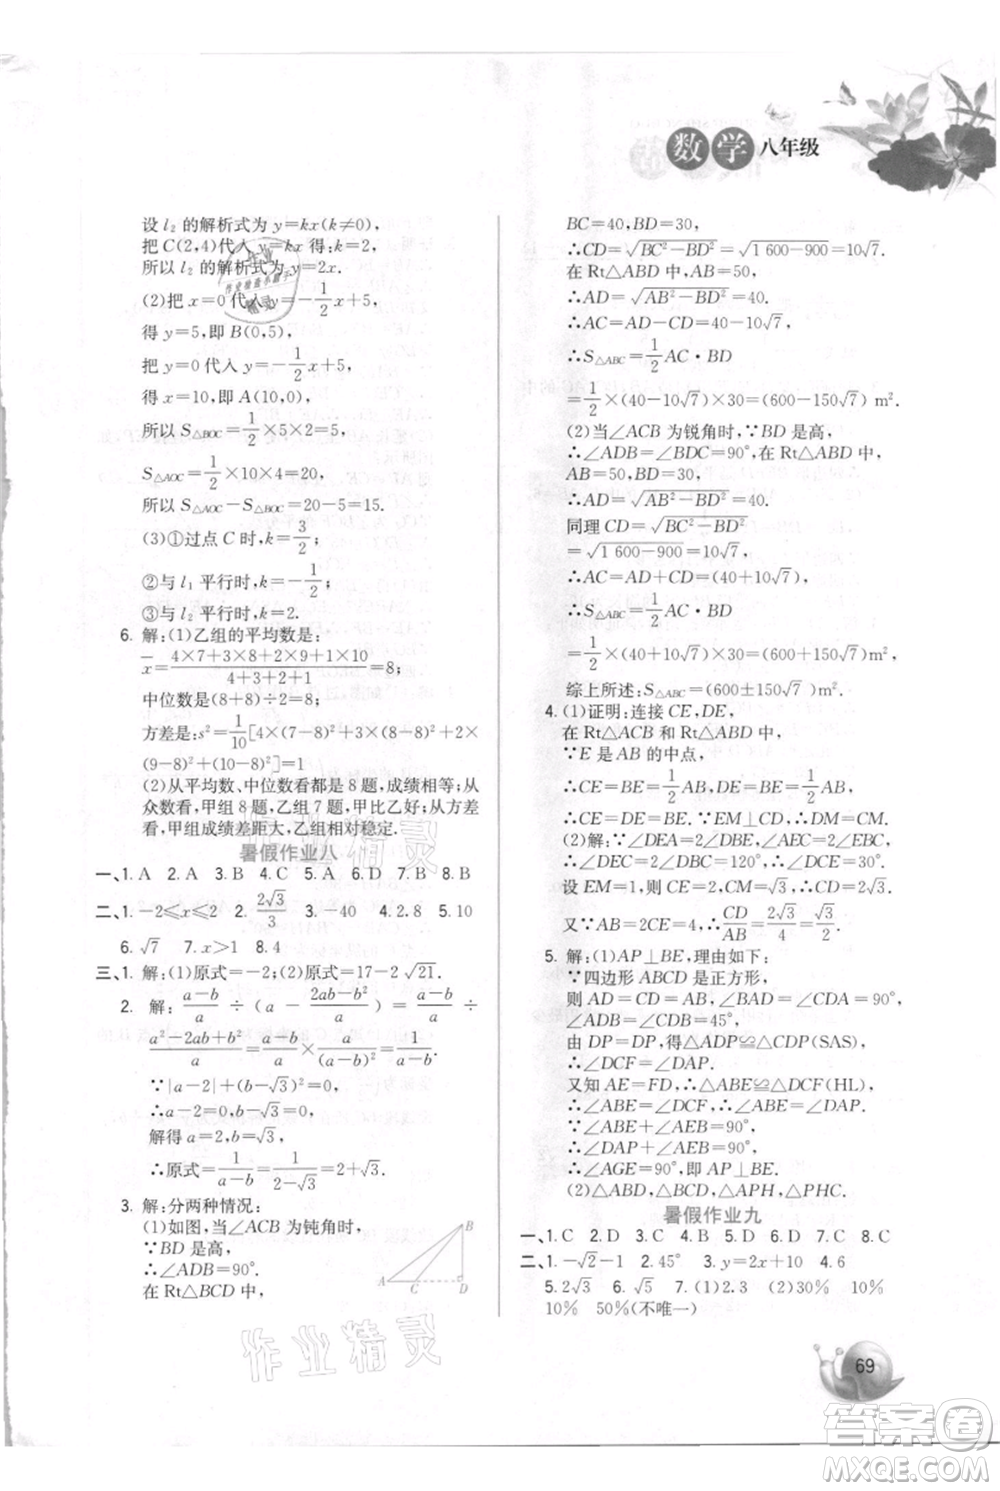 数学 八年级
设 l₂ 的解析式为 y=kx(k≠0),
把 C(2,4)代入 y=kx 得:k=2,
所以 l₂ 的解析式为 y=2x.
(2)把 x=0 代入 y=-1/2x+5,
得 y=5,即 B(0,5),
把 y=0 代入 y=-1/2x+5,
得 x=10,即 A(10,0),
所以 S△BOC=1/2×5×2=5,
S△AOC=1/2×10×4=20,
所以 S△AOC-S△BOC=20-5=15.
(3)①过点 C 时,k=3/2;
②与 l₁ 平行时,k=-1/2;
③与 l₂ 平行时,k=2.
6. 解:(1)乙组的平均数是:
x̄=(4×7+3×8+2×9+1×10)/(4+3+2+1)=8;
中位数是(8+8)÷2=8;
方差是:s²=1/10[4×(7-8)²+3×(8-8)²+2×
(9-8)²+(10-8)²]=1
(2)从平均数、中位数看都是 8 题,成绩相等;从
众数看,甲组 8 题,乙组 7 题,甲比乙好;从方差
看,甲组成绩差距大,乙组相对稳定.
暑假作业八
一、1. A 2. A 3. B 4. C 5. A 6. D 7. B 8. B
二、1. -2≤x≤2 2. 2√3/3 3. -40 4. 2.8 5. 10
6. √7 7. x>1 8. 4
三、1. 解:(1)原式=-2;(2)原式=17-2√21.
2. 解: (a-b)/a ÷ (a - (2ab-b²)/a) = (a-b)/a ÷
(a²-2ab+b²)/a = (a-b)/a × a/(a-b)² = 1/(a-b).
∵|a-2|+(b-√3)²=0,
∴a-2=0,b-√3=0,
解得 a=2,b=√3,
∴原式=1/(a-b)=1/(2-√3)=2+√3.
3. 解:分两种情况:
(1)如图,当∠ACB 为钝角时,
∵BD 是高,
∴∠ADB=90°.
在 Rt△BCD 中,
B
A C D
BC=40,BD=30,
∴CD=√(BC²-BD²)=√(1 600-900)=10√7,
在 Rt△ABD 中,AB=50,
∴AD=√(AB²-BD²)=40.
∴AC=AD-CD=40-10√7,
∴S△ABC=1/2AC·BD
=1/2×(40-10√7)×30=(600-150√7)m².
(2)当∠ACB 为锐角时,∵BD 是高,
∴∠ADB=∠BDC=90°,在 Rt△ABD 中,
AB=50,BD=30,
∴AD=√(AB²-BD²)=40.
同理 CD=√(BC²-BD²)
=√(1 600-900)=10√7,
∴AC=AD+CD=(40+10√7),
∴S△ABC=1/2AC·BD
=1/2×(40+10√7)×30=(600+150√7)m²,
综上所述:S△ABC=(600±150√7)m².
4. (1)证明:连接 CE,DE,
在 Rt△ACB 和 Rt△ABD 中,
∵E 是 AB 的中点,
∴CE=BE=1/2AB,DE=BE=1/2AB,
∴CE=DE.∵EM⊥CD,∴DM=CM.
(2)解:∵∠DEA=2∠DBE,∠AEC=2∠EBC,
∴∠DEC=2∠DBC=120°,∴∠DCE=30°.
设 EM=1,则 EC=2,CM=√3,∴CD=2√3.
又∵AB=2CE=4,∴CD/AB=2√3/4=√3/2.
5. 解:(1)AP⊥BE,理由如下:
∵四边形 ABCD 是正方形,
则 AD=CD,∠BAD=∠CDA=90°,
∠ADB=∠CDB=45°.
由 DP=DP,得△ADP≌△CDP(SAS),
∴∠DCF=∠DAP.
又知 AE=FD,∴△ABE≌△DCF(HL),
∴∠ABE=∠DCF,∴∠ABE=∠DAP.
∵∠ABE+∠AEB=90°,
∴∠DAP+∠AEB=90°,
∴∠AGE=90°,即 AP⊥BE.
(2)△ABD,△BCD,△APC,△PHC.
暑假作业九
一、1. C 2. C 3. D 4. B 5. D 6. D 7. C 8. C
二、1. -√2-1 2. 45° 3. y=2x+10 4. 6
5. 2√3 6. √5 7. (1)2.3 (2)30% 10%
10% 50%(不唯一)
69
作业精灵
作业精灵
答案卷
MXQE.COM